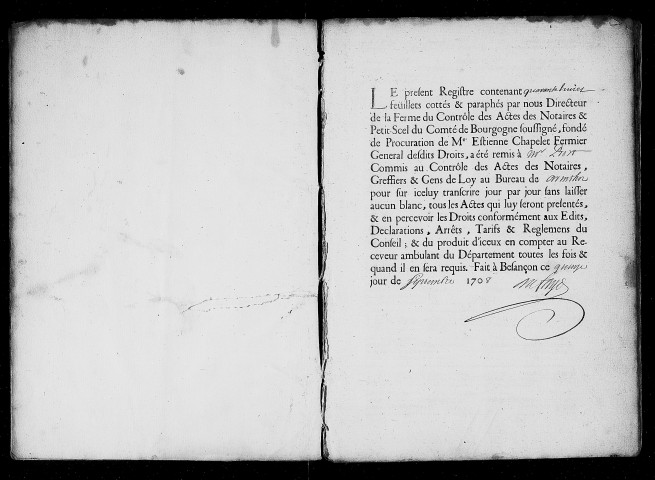 LE present Registre contenant quarante huict
feuillets cottés & paraphés par nous Directeur
de la Ferme du Contrôle des Actes des Notaires &
Petit-Scel du Comté de Bourgogne soussigné, fondé
de Procuration de Me Estienne Chapelet Fermier
General desdits Droits, a été remis à Mr
Commis au Contrôle des Actes des Notaires,
Greffiers & Gens de Loy au Bureau de
pour sur iceluy transcrire jour par jour sans laisser
aucun blanc, tous les Actes qui luy seront presentés,
& en percevoir les Droits conformément aux Edits,
Declarations, Arrêts, Tarifs & Reglemens du
Conseil; & du produit d'iceux en compter au Re-
ceveur ambulant du Département toutes les fois &
quand il en sera requis. Fait à Besançon ce quinze
jour de septembre 1708